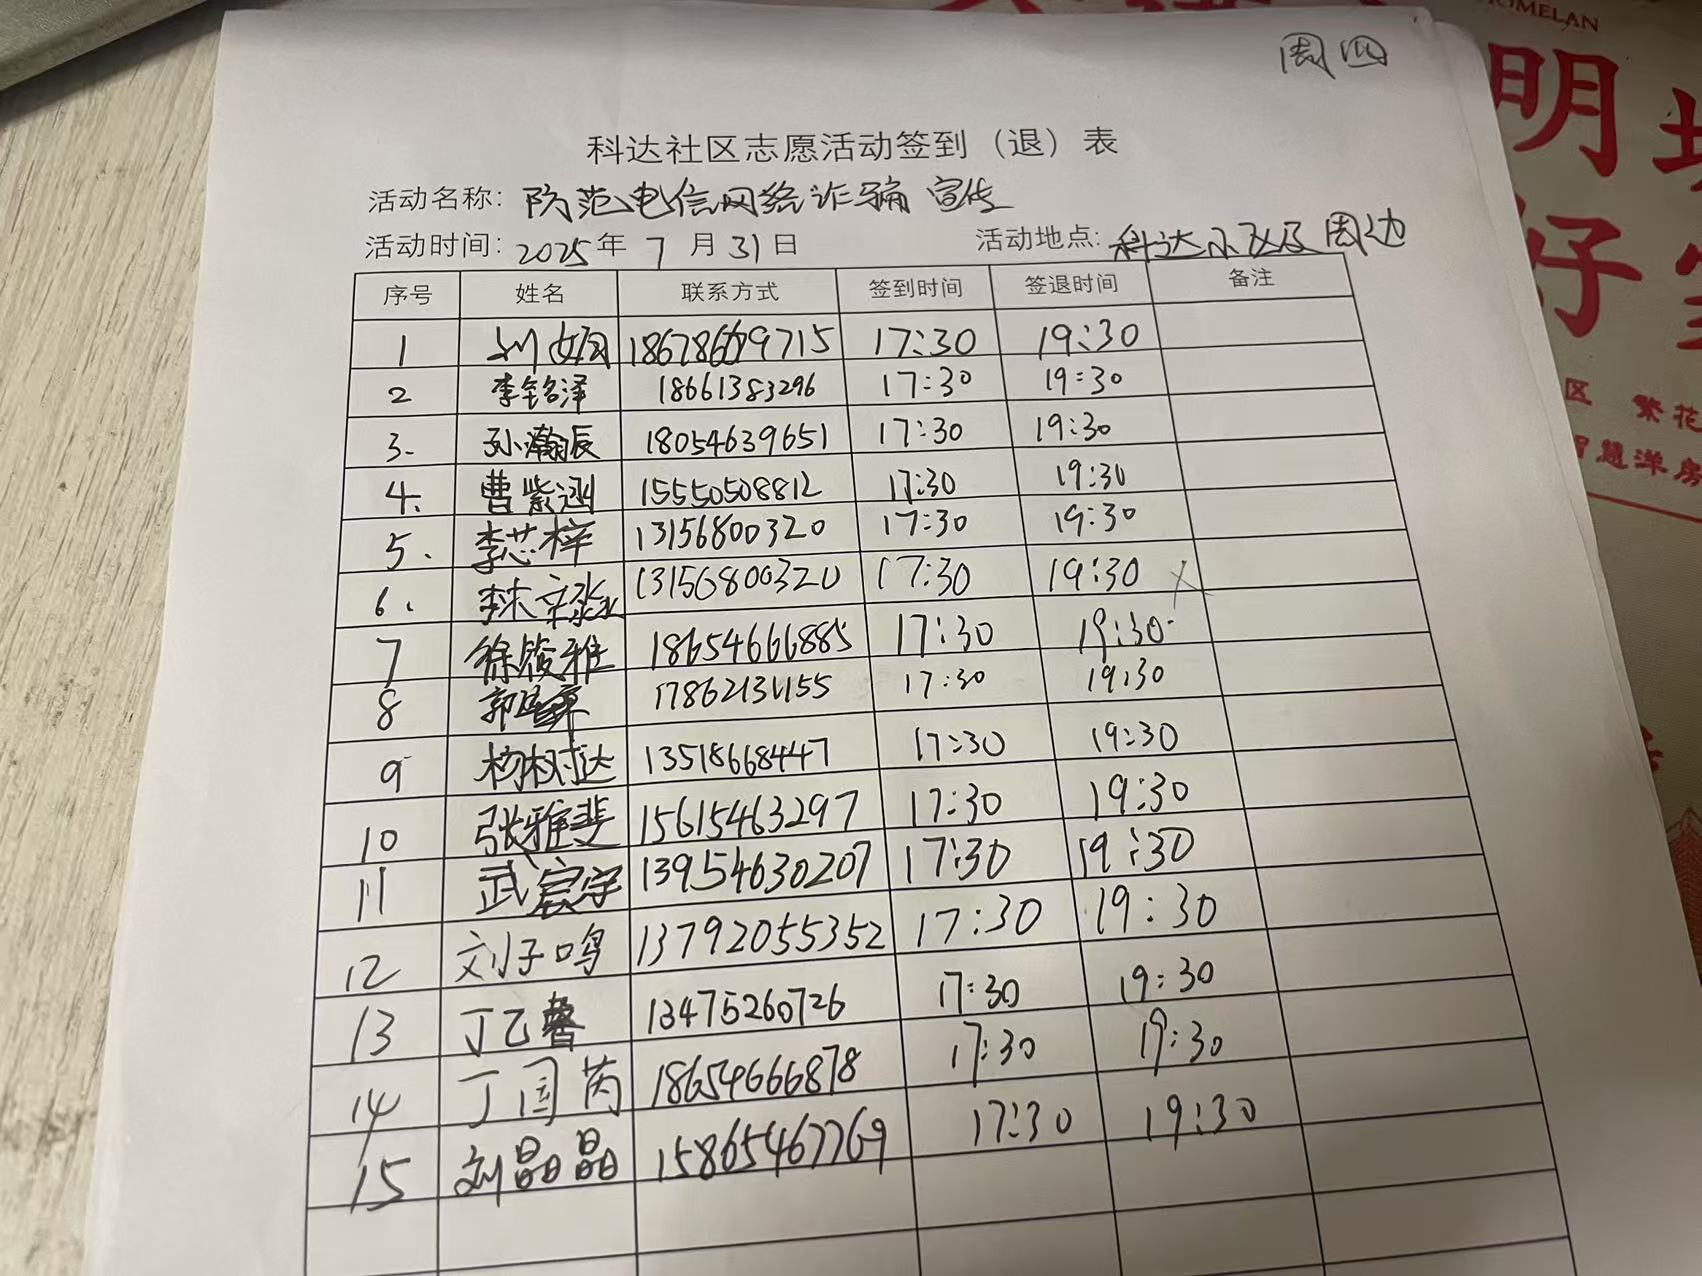 HOMELAN
周四
明
好
区 繁花
智慧洋房
科达社区志愿活动签到（退）表
活动名称：防范电信网络诈骗宣传
活动时间：2025年 7 月 31 日 活动地点：科达小区及周边
序号 姓名 联系方式 签到时间 签退时间 备注
1 刘 17:30 19:30
2 李铭泽 18661383296 17:30 19:30
3. 孙瀚辰 18054639651 17:30 19:30
4. 曹紫涵 15550508812 17:30 19:30
5. 李芯梓 13156800320 17:30 19:30
6. 13156800320 17:30 19:30 X
7 徐筱雅 18654666885 17:30 19:30
8 郭 17862131155 17:30 19:30
9 杨树达 13518668447 17:30 19:30
10 张雅斐 15615463297 17:30 19:30
11 武宸宇 13954630207 17:30 19:30
12 刘子鸣 13792055352 17:30 19:30
13 丁乙馨 13475260726 17:30 19:30
14 丁国芮 18654666878 17:30 19:30
15 刘晶晶 15865467769 17:30 19:30